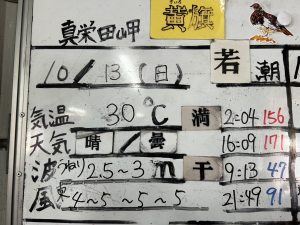 真栄田岬 黄旗
10/13(日) 若潮
気温 30℃ 満 2:04 156
天気 晴/曇 16:09 171
波(うねり) 2.5~3m 干 9:13 47
風 東4~5~5~5 21:49 91